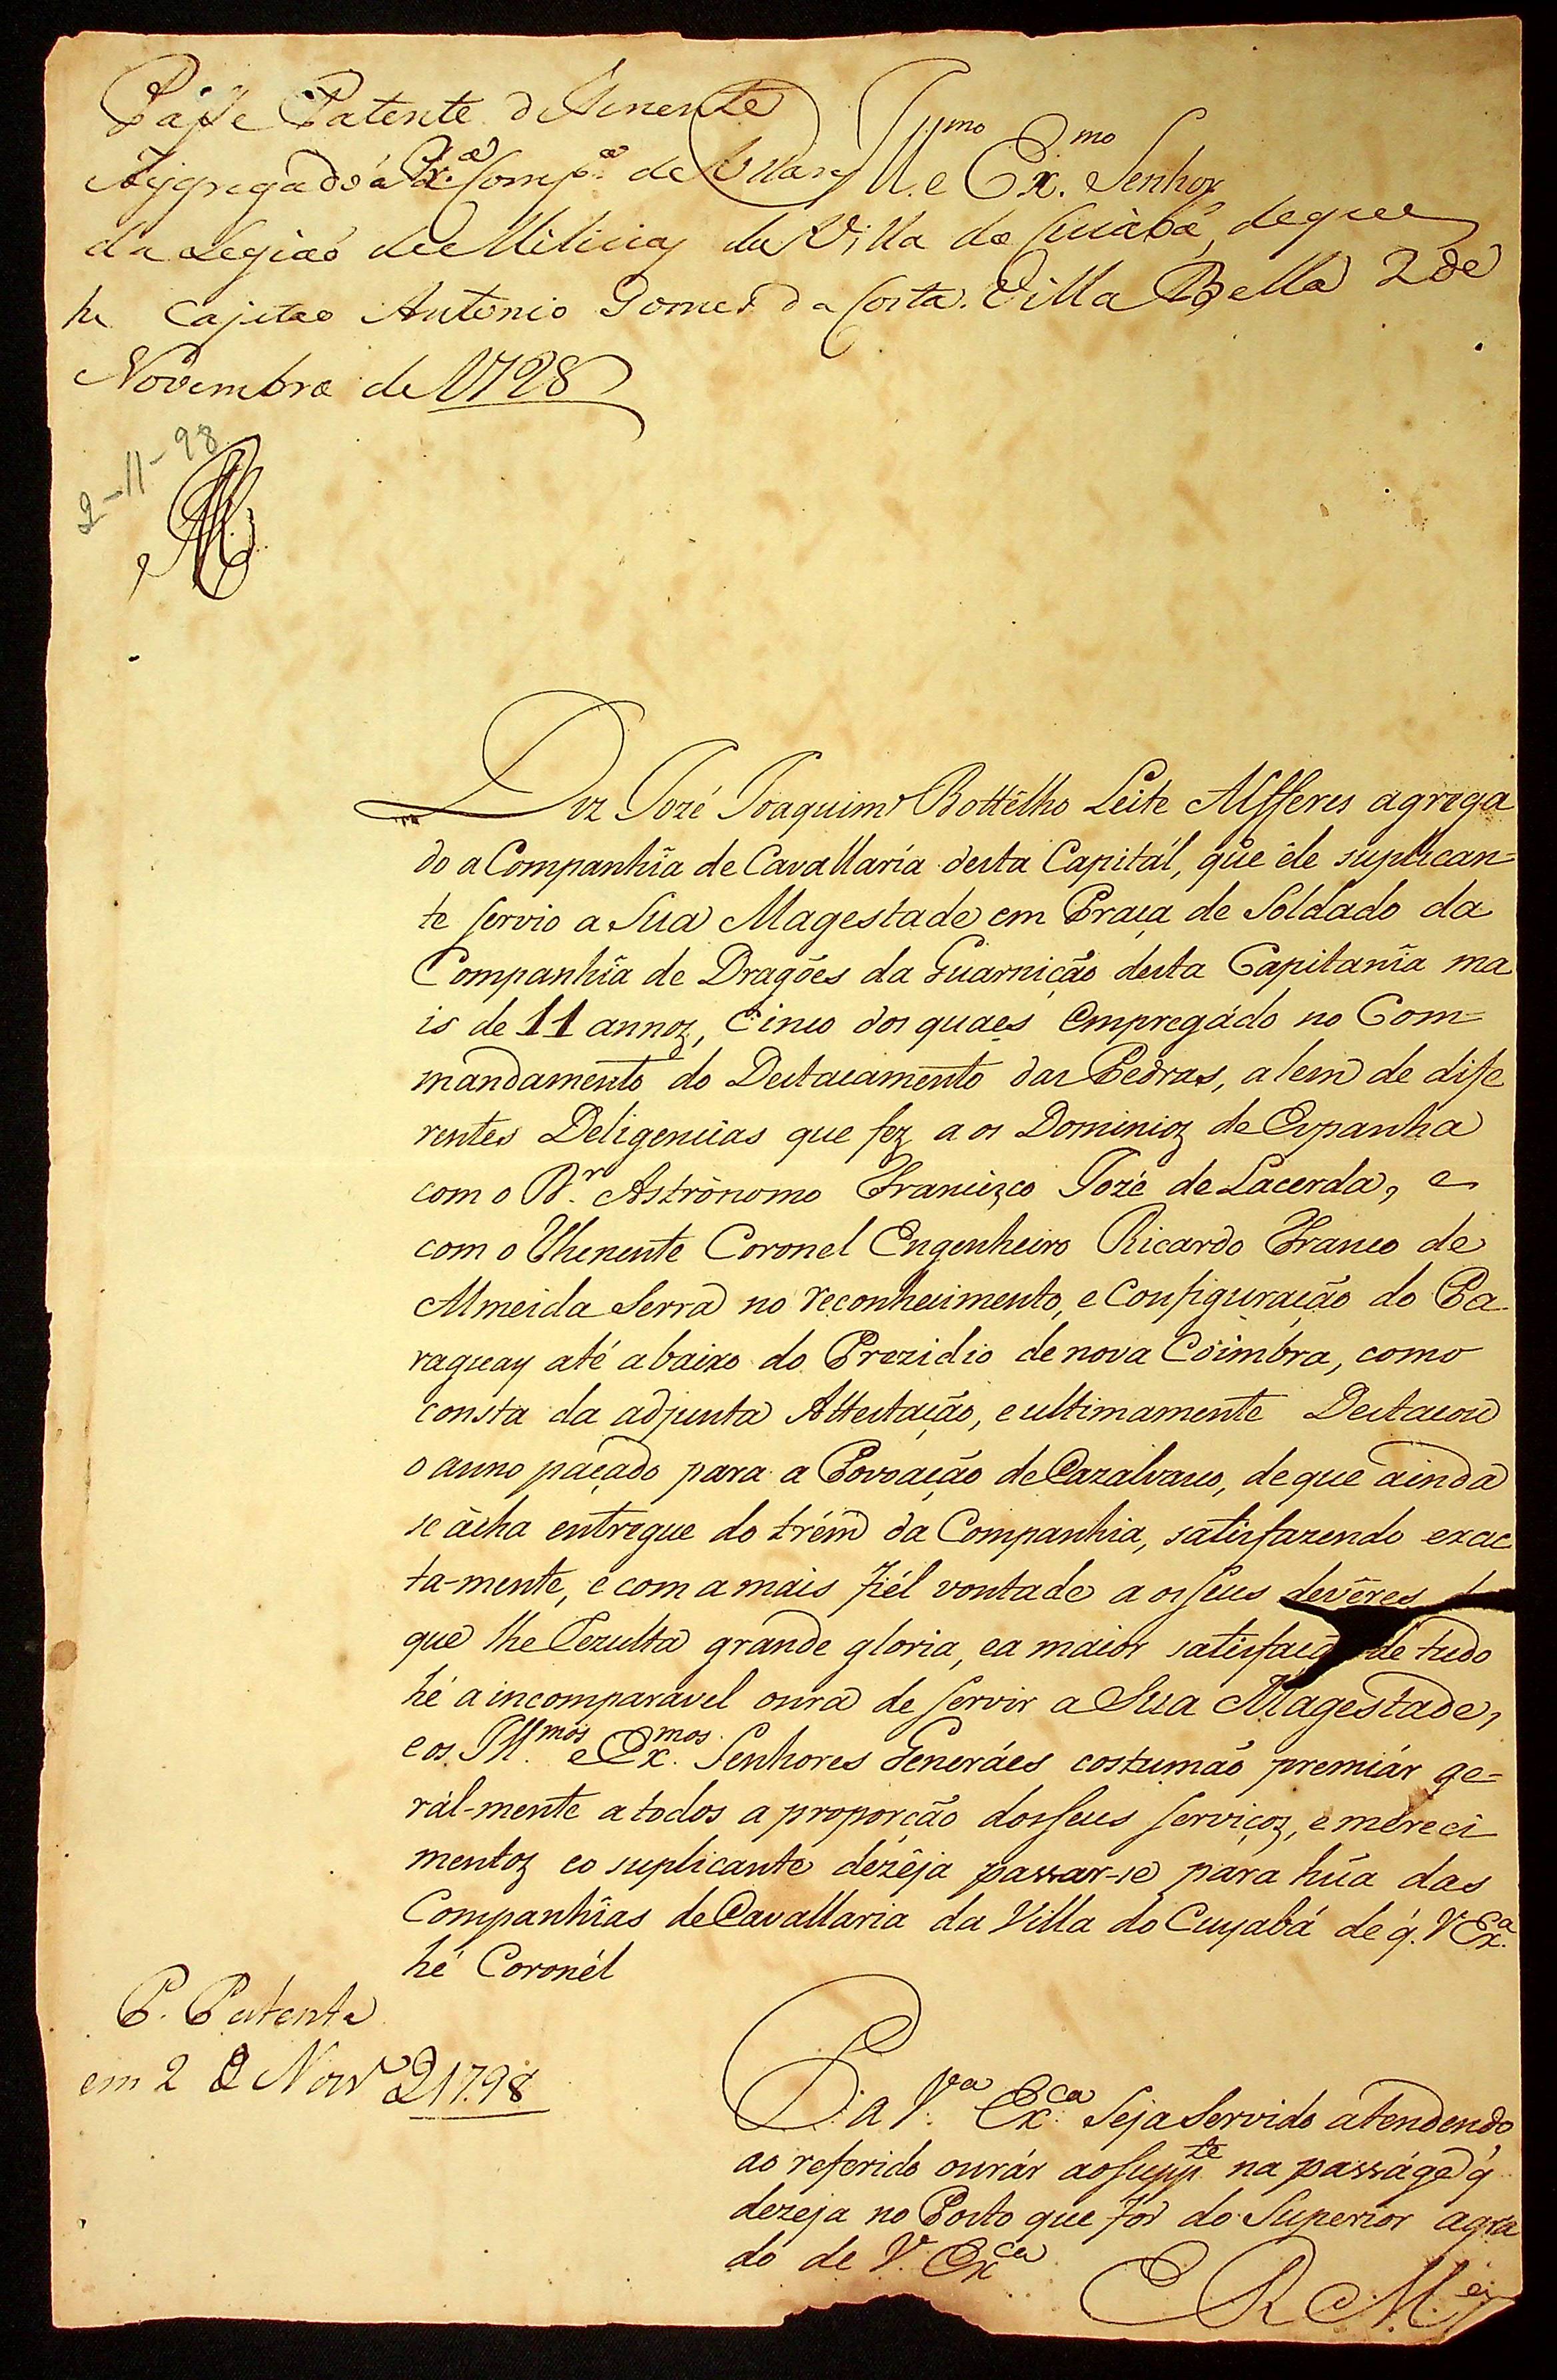 Passe Patente de Tenente
Aggregado á Pr.ª Comp.ª de Uzares
Ill.mo e Ex.mo Senhor
da Legiaõ de Milicias da Villa do Cuiabá, de que
he Capitaõ Antonio Gomes da Costa. Villa Bella 2 de
Novembro de 1798
2-11-98
Diz Jozé Joaquim Bottêlho Leite Alfferes agrega
do a Companhîa de Cavallaría desta Capitál, que êle suplican=
te servio a Sua Magestade em Praça de Soldado da
Companhîa de Dragões da Guarnição desta Capitanîa ma
is de 11 annos, Cinco dos quaes Empregádo no Com=
mandamento do Destacamento das Pedras, alem de dife
rentes Deligencias que fez aos Dominios de Espanha
com o D.r Astrônomo Francisco Jozé de Lacerda, e
com o Thenente Coronel Engenheiro Ricardo Franco de
Almeida Serra no reconhecimento, e Configuração do Pa
raguay até abaixo do Prezidio de nova Coimbra, como
consta da adjunta Attestação, e ultimamente Destacou
o anno paçado para a Povoação de Cazalvasco, de que ainda
se ácha entregue do trém da Companhia, satisfazendo exac
ta-mente, e com a mais fiél vontade aos seus devêres
que lhe Rezulta grande gloria, e a maior satisfaçã de tudo
hé a incomparavel onra de servir a Sua Magestade,
e os Ill.mos e Ex.mos Senhores Generáes costumão premiár ge=
rál-mente a todos a proporção dos seus serviços, e mereci
mentos e o suplicante dezêja passar-se para húa das
Companhîas de Cavallaria da Villa do Cuyabá de q̃. V Ex.ª
hé Coronél
P. Patente
em 2 de Novr.º de 1798
P. a V.ª Ex.ca Seja Servido atendendo
ao referido onrár ao Supp.te na passáge q̃
dezeja no Posto que for do Superior agra
do de V. Ex.ca
E R M.ce